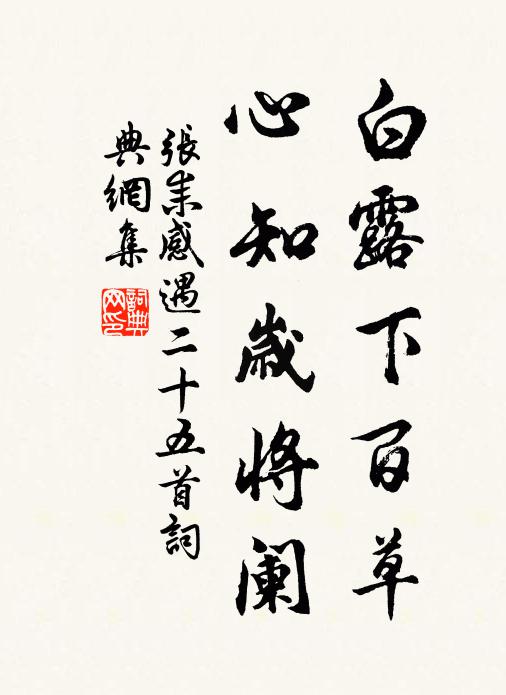 白露下百草
心知歲將闌
張耒感遇二十五首詞
典網集
詞典
网印